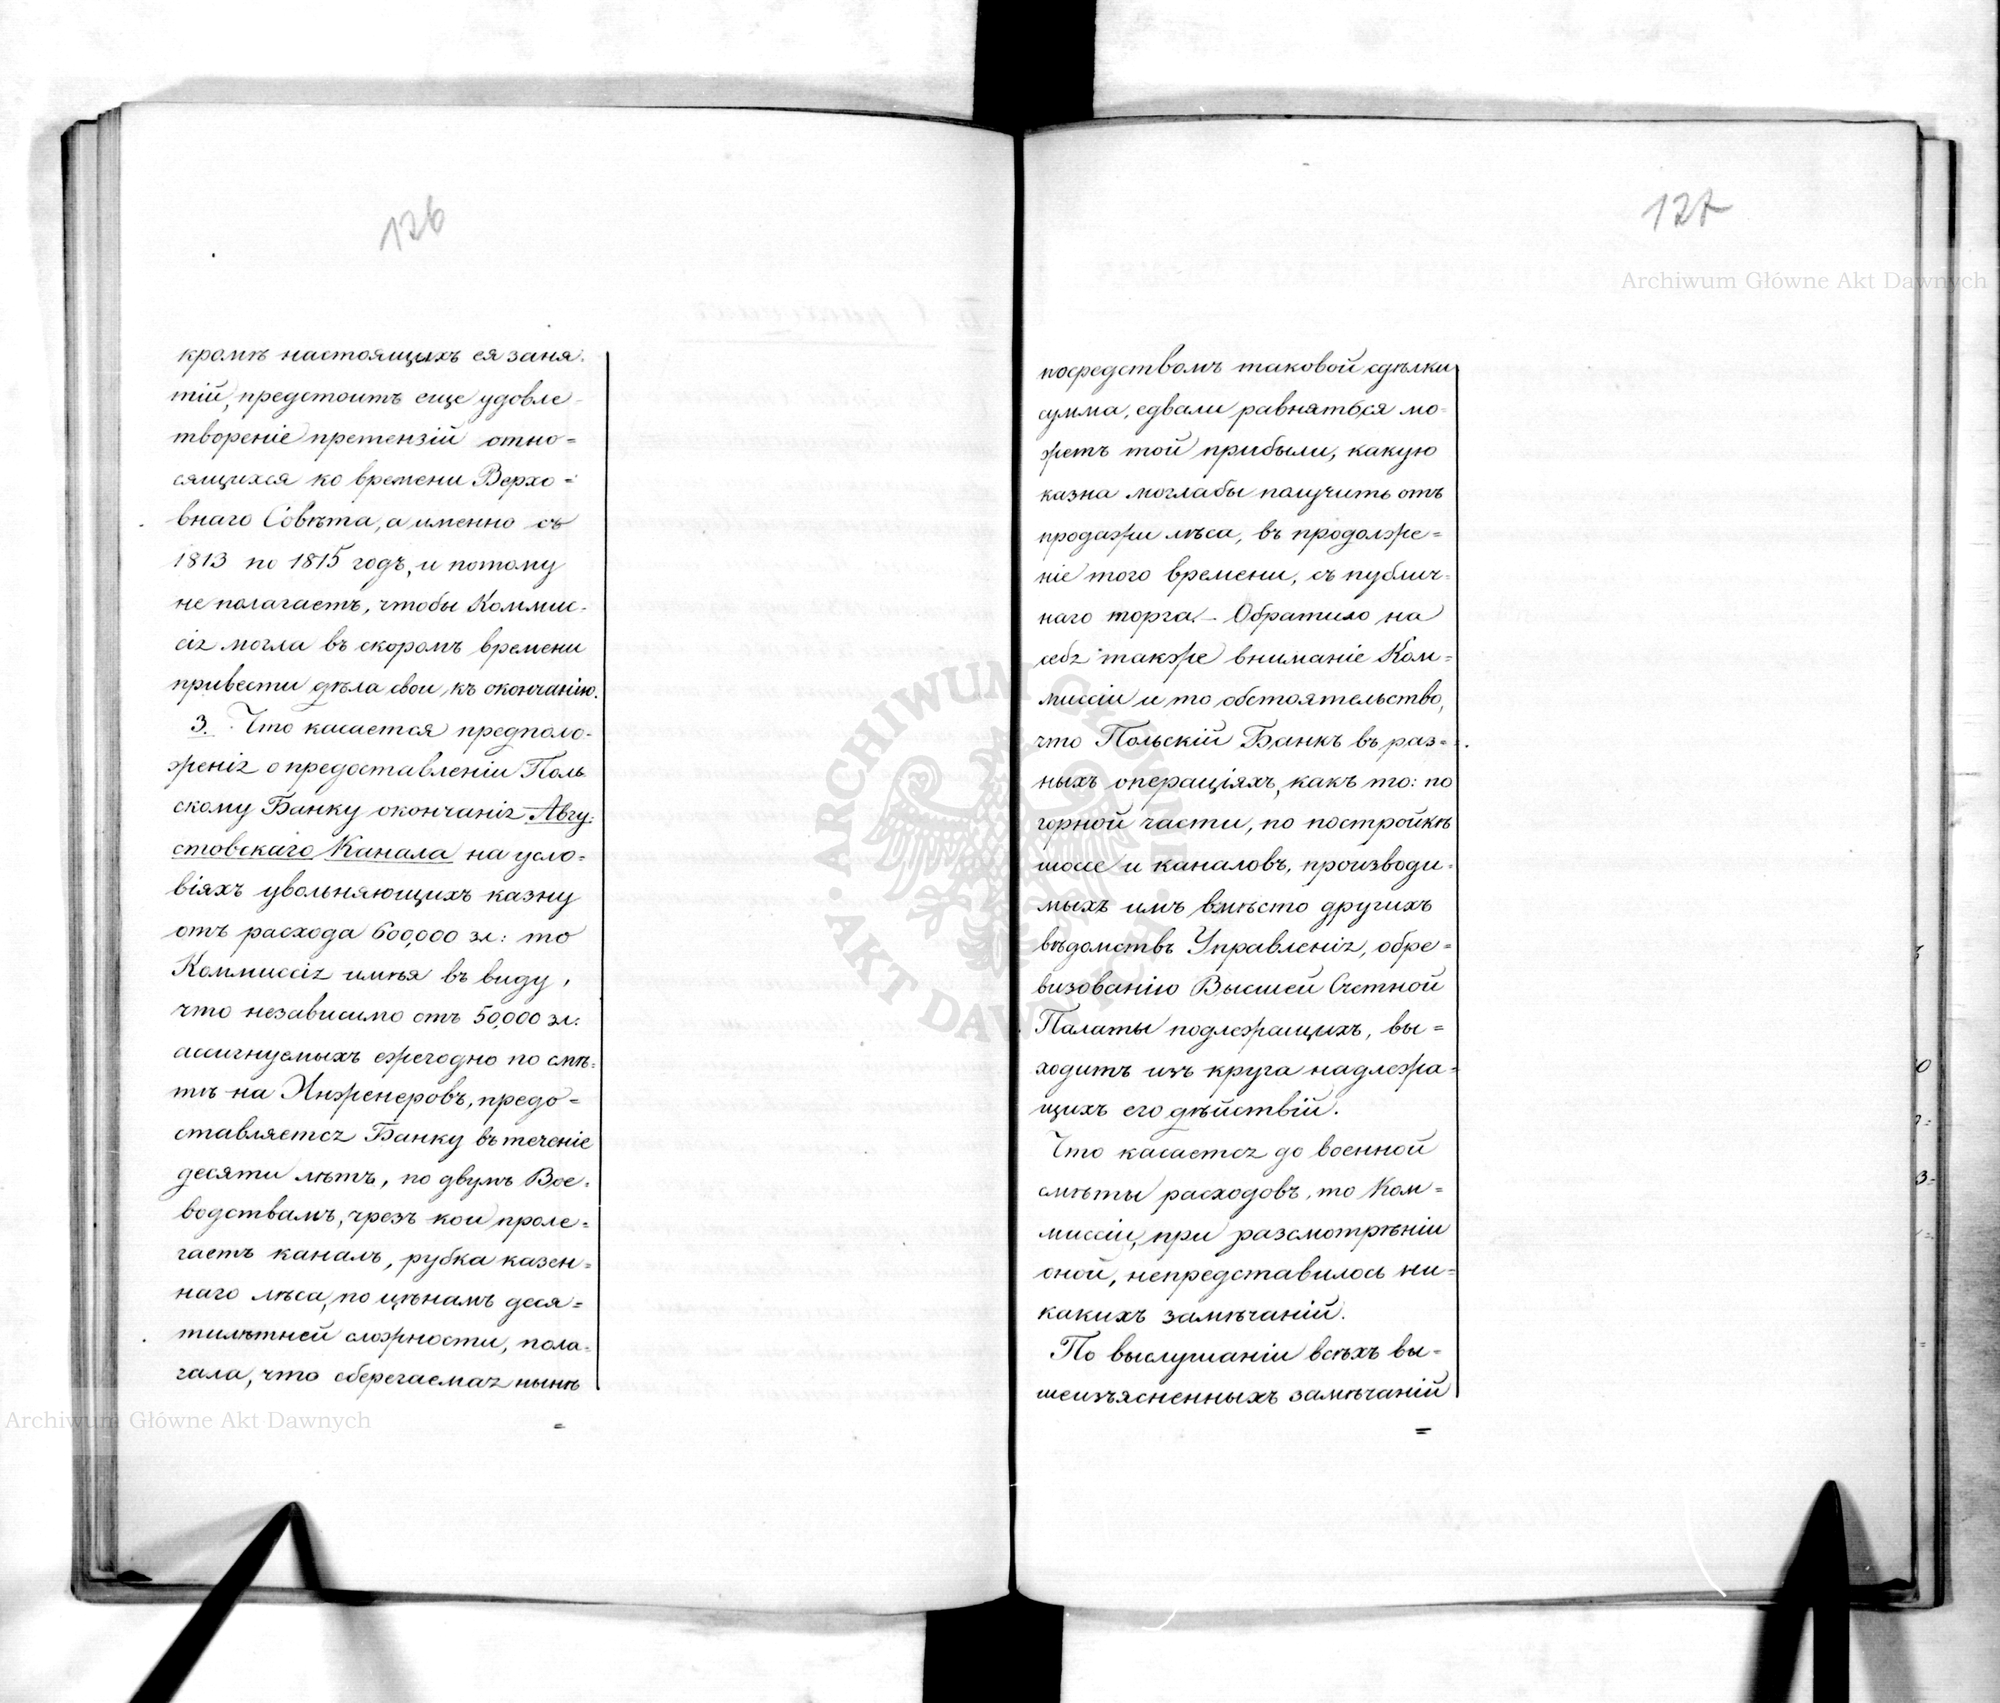 126
кромѣ настоящихъ ея заня-
тій, предстоитъ еще удовле-
твореніе претензій отно=
сящихся ко времени Верхо=
внаго Совѣта, а именно съ
1813 по 1815 годъ, и потому
не полагаетъ, чтобы Коммис-
сія могла въ скоромъ времени
привести дѣла свои къ окончанію.
3. Что касается предполо-
женія о предоставленіи Поль
скому Банку окончанія Авгу-
стовскаго Канала на усло-
віяхъ увольняющихъ казну
отъ расхода 600,000 зл: то
Коммиссія имѣя въ виду,
что независимо отъ 50,000 зл:
ассигнуемыхъ ежегодно по смѣ-
тѣ на Инженеровъ, предо=
ставляется Банку въ теченіе
десяти лѣтъ, по двумъ Вое-
водствамъ, чрезъ кои проле-
гаетъ каналъ, рубка казен=
наго лѣса, по цѣнамъ деся=
тилѣтней сложности, пола-
гала, что сберегаемая нынѣ
=
127
посредствомъ таковой сдѣлки
сумма, едвали равняться мо-
жетъ той прибыли, какую
казна моглабы получить отъ
продажи лѣса, въ продолже=
ніе того времени, съ публич-
наго торга. – Обратило на
себя также вниманіе Ком=
миссіи и то обстоятельство,
что Польскій Банкъ въ раз=
ныхъ операціяхъ, какъ то: по
горной части, по постройкѣ
шоссе и каналовъ, производи-
мыхъ имъ вмѣсто другихъ
вѣдомствъ Управленія, обре=
визованію Высшей Счетной
Палаты подлежащихъ, вы=
ходитъ изъ круга надлежа-
щихъ его дѣйствій.
Что касается до военной
смѣты расходовъ, то Ком=
миссіи, при разсмотрѣніи
оной, непредставилось ни=
какихъ замѣчаній.
По выслушаніи всѣхъ вы=
шеизъясненныхъ замѣчаній
=
Archiwum Główne Akt Dawnych
Archiwum Główne Akt Dawnych
ARCHIWUM GŁÓWNE AKT DAWNYCH